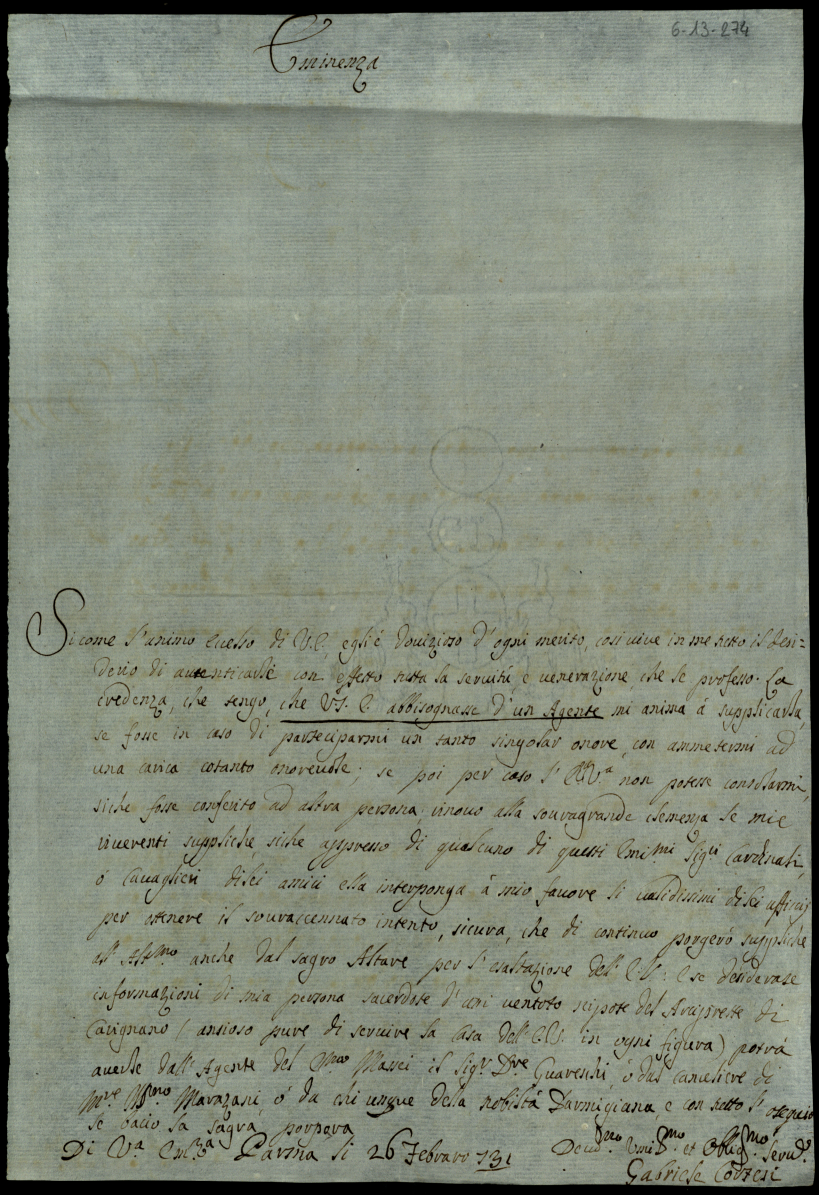 6-13-274
Eminenza
Sicome l'animo eccelso di V.E. egli è dovizioso d'ogni merito, cosi vive in me tutto il desi=
derio di autenticarle con effetto tutta la servitù, e venerazione che le professo. La
credenza, che tengo, che VS. E. abbisognasse d'un Agente mi anima à supplicarla,
se fosse in caso di parteciparmi un tanto singolar onore, con ammetermi ad
una carica cotanto onorevole; se poi per caso l' non potesse consolarmi,
siche fosse conferito ad altra persona, rinovo alla sovragrande clemenza le mie
riverenti suppliche siche appresso di qualcuno di questi Emi.mi Sig.ri Cardinali,
ò Cavaglieri di lei amici ella interponga à mio favore li validissimi di lei uffizij
per ottenere il sovraccennato intento, sicura, che di continuo porgerò suppliche
all' Alt.mo anche dal sagro Altare per l'esaltazione dell' E.V: E se desiderase
informazioni di mia persona sacerdote d'ani ventoto nipote del Arciprette di
Carignano (ansioso pure di servire la Casa dell' E.V. in ogni figura) potrà
averle dall' Agente del il Sig.r D.re Guareschi, ò dal canceliere di
Marazani, ò da chi unque della nobiltà Parmigiana e con tutto l'ossequio
le bacio la sagra porpora
Di V.a Em.za Parma li 26 Febraro 731 Devot.mo Umil.mo et Obblig.mo Serv.e
Gabriele Cortesi